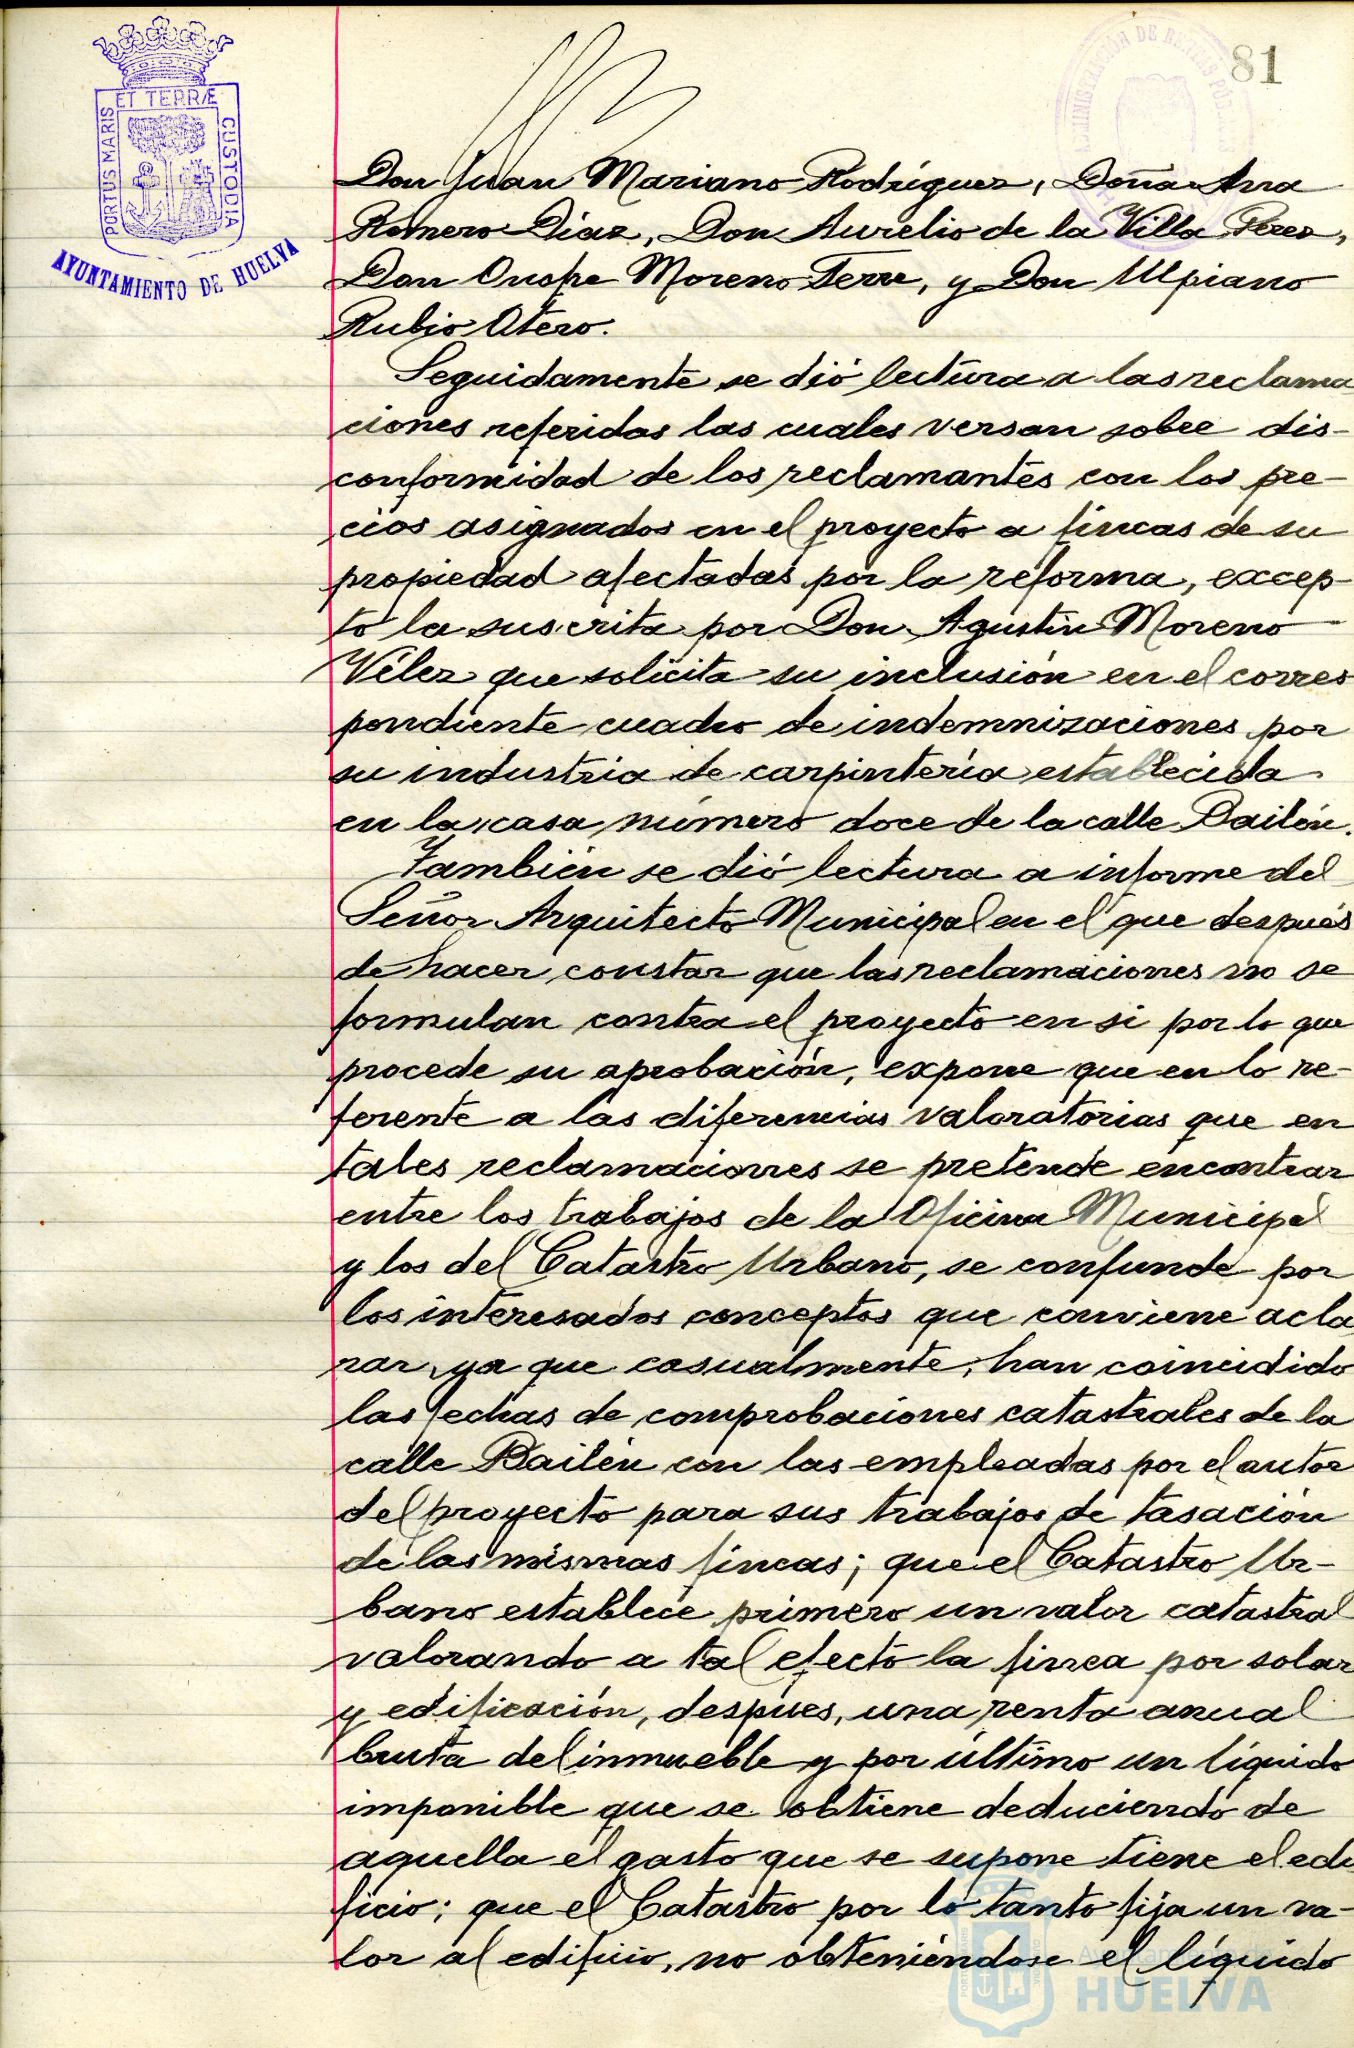 81
ET TERRÆ
PORTUS MARIS
CUSTODIA
AYUNTAMIENTO DE HUELVA
ADMINISTRACIÓN DE RENTAS PÚBLICAS
Don Juan Mariano Rodríguez, Doña Ana
Romero Díaz, Don Aurelio de la Villa Perez,
Don Onofre Moreno Terre, y Don Ulpiano
Rubio Otero.
Seguidamente se dió lectura a las reclama
ciones referidas las cuales versan sobre dis-
conformidad de los reclamantes con los pre-
cios asignados en el proyecto a fincas de su
propiedad afectadas por la reforma, excep-
to la suscrita por Don Agustín Moreno
Vélez que solicita su inclusión en el corres
pondiente cuadro de indemnizaciones por
su industria de carpintería establecida
en la casa número doce de la calle Bailén.
También se dió lectura a informe del
Señor Arquitecto Municipal en el que después
de hacer constar que las reclamaciones no se
formulan contra el proyecto en si por lo que
procede su aprobación, expone que en lo re-
ferente a las diferencias valoratorias que en
tales reclamaciones se pretende encontrar
entre los trabajos de la Oficina Municipal
y los del Catastro Urbano, se confunde por
los interesados conceptos que conviene acla
rar, ya que casualmente, han coincidido
las fechas de comprobaciones catastrales de la
calle Bailén con las empleadas por el autor
del proyecto para sus trabajos de tasación
de las mismas fincas; que el Catastro Ur-
bano establece primero un valor catastral
valorando a tal efecto la finca por solar
y edificación, despues, una renta anual
bruta del inmueble y por último un líquido
imponible que se obtiene deduciendo de
aquella el gasto que se supone tiene el edi
ficio; que el Catastro por lo tanto fija un va-
lor al edificio, no obteniéndose el líquido
Ayuntamiento de
HUELVA